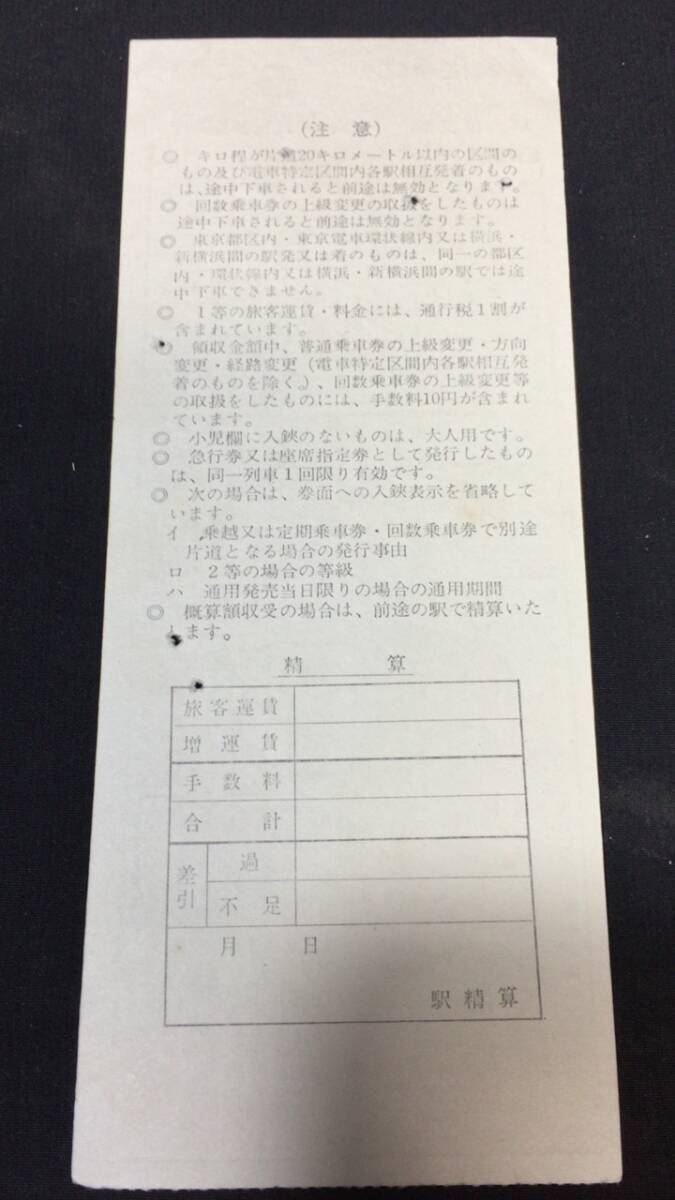 (注 意)
◎ キロ程が片道20キロメートル以内の区間の
もの及び電車特定区間内各駅相互発着のもの
は、途中下車されると前途は無効となります。
◎ 回数乗車券の上級変更の取扱をしたものは
途中下車されると前途は無効となります。
◎ 東京都区内・東京電車環状線内又は横浜・
新横浜間の駅発又は着のものは、同一の都区
内・環状線内又は横浜・新横浜間の駅では途
中下車できません。
◎ 1等の旅客運賃・料金には、通行税1割が
含まれています。
◎ 領収金額中、普通乗車券の上級変更・方向
変更・経路変更(電車特定区間内各駅相互発
着のものを除く。)、回数乗車券の上級変更等
の取扱をしたものには、手数料10円が含まれ
ています。
◎ 小児欄に入鋏のないものは、大人用です。
◎ 急行券又は座席指定券として発行したもの
は、同一列車1回限り有効です。
◎ 次の場合は、券面への入鋏表示を省略して
います。
イ 乗越又は定期乗車券・回数乗車券で別途
片道となる場合の発行事由
ロ 2等の場合の等級
ハ 通用発売当日限りの場合の通用期間
◎ 概算額収受の場合は、前途の駅で精算いた
します。
精 算
旅客運賃
増運賃
手数料
合計
差引
過
不足
月 日
駅精算